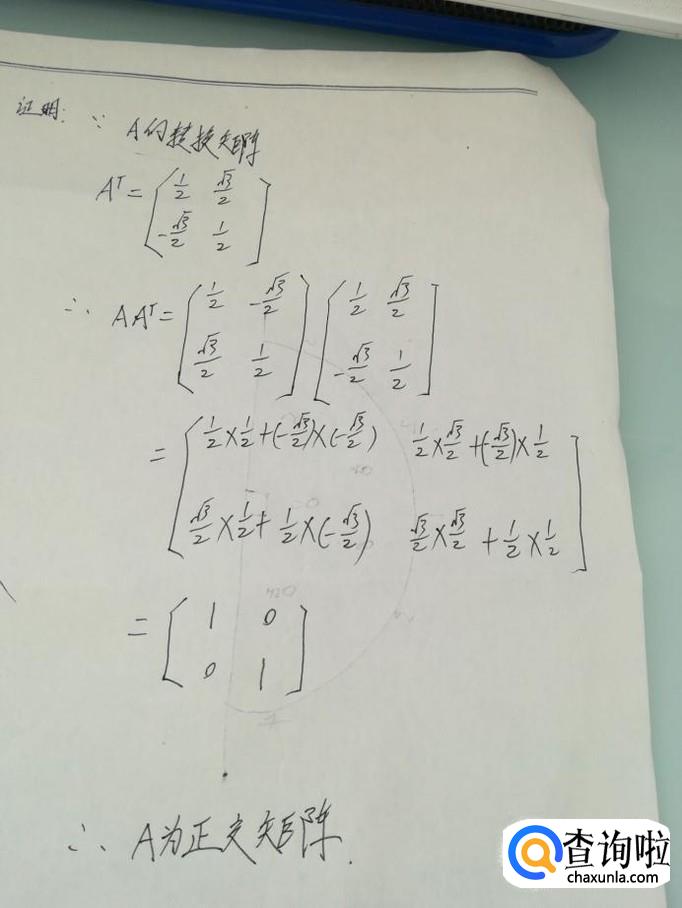 证明: ∵ A的转换矩阵
Aᵀ = [1/2 √3/2; -√3/2 1/2]
∴ AAᵀ = [1/2 -√3/2; √3/2 1/2] [1/2 √3/2; -√3/2 1/2]
= [1/2×1/2+(-√3/2)×(-√3/2) 1/2×√3/2+(-√3/2)×1/2; √3/2×1/2+1/2×(-√3/2) √3/2×√3/2+1/2×1/2]
= [1 0; 0 1]
∴ A为正交矩阵.
查询啦
chaxunla.com